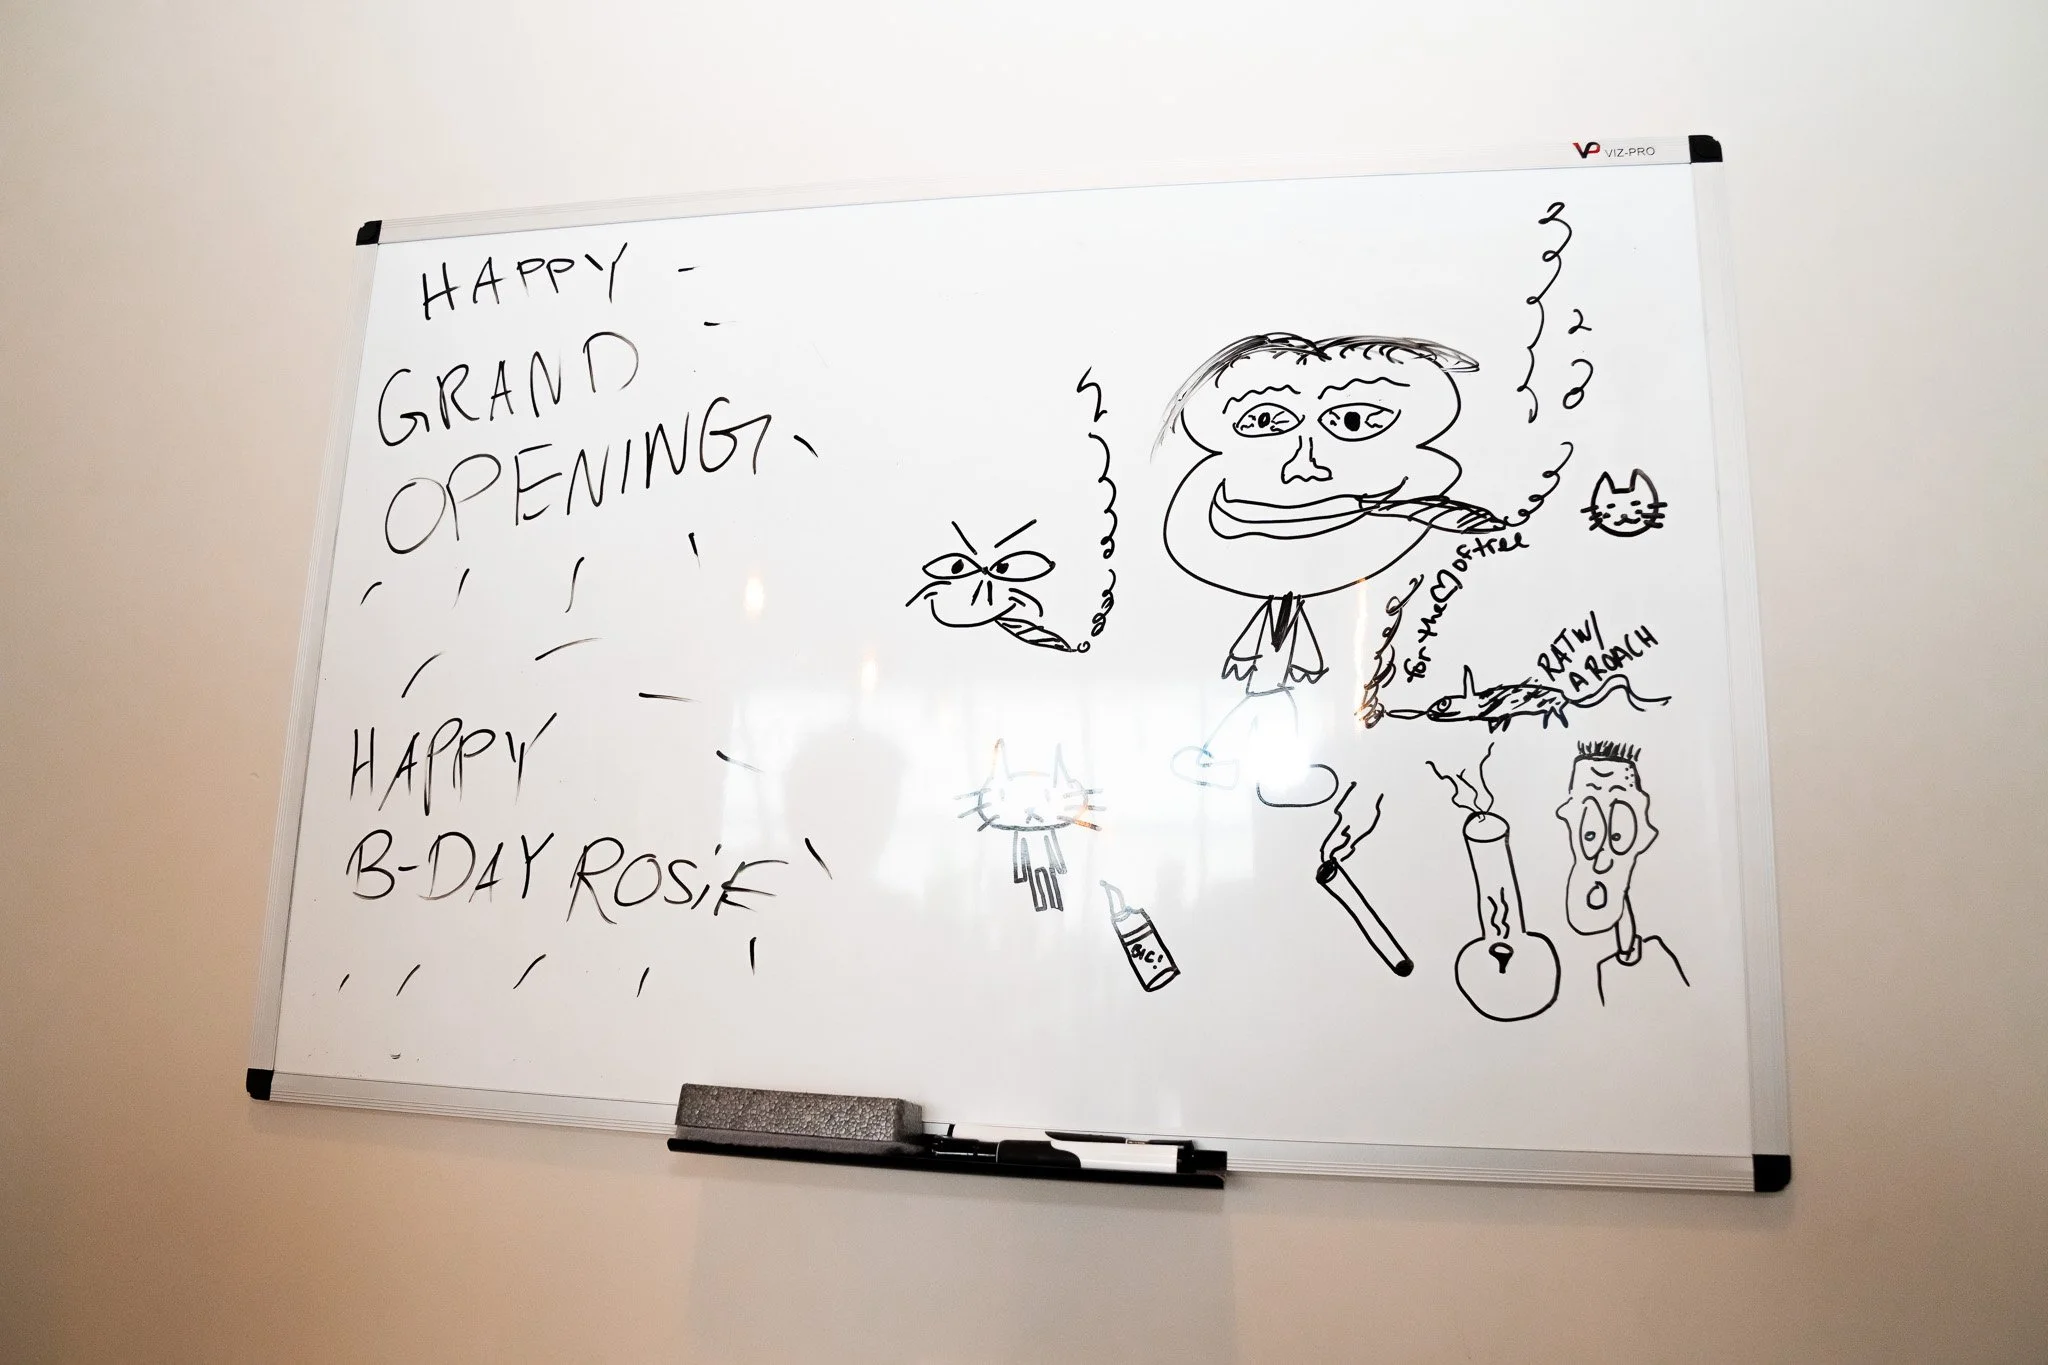 VP VIZ-PRO
HAPPY
GRAND
OPENING
HAPPY
B-DAY ROSiE
for the ♡ of tree
RAT W/
A ROACH
BIC!